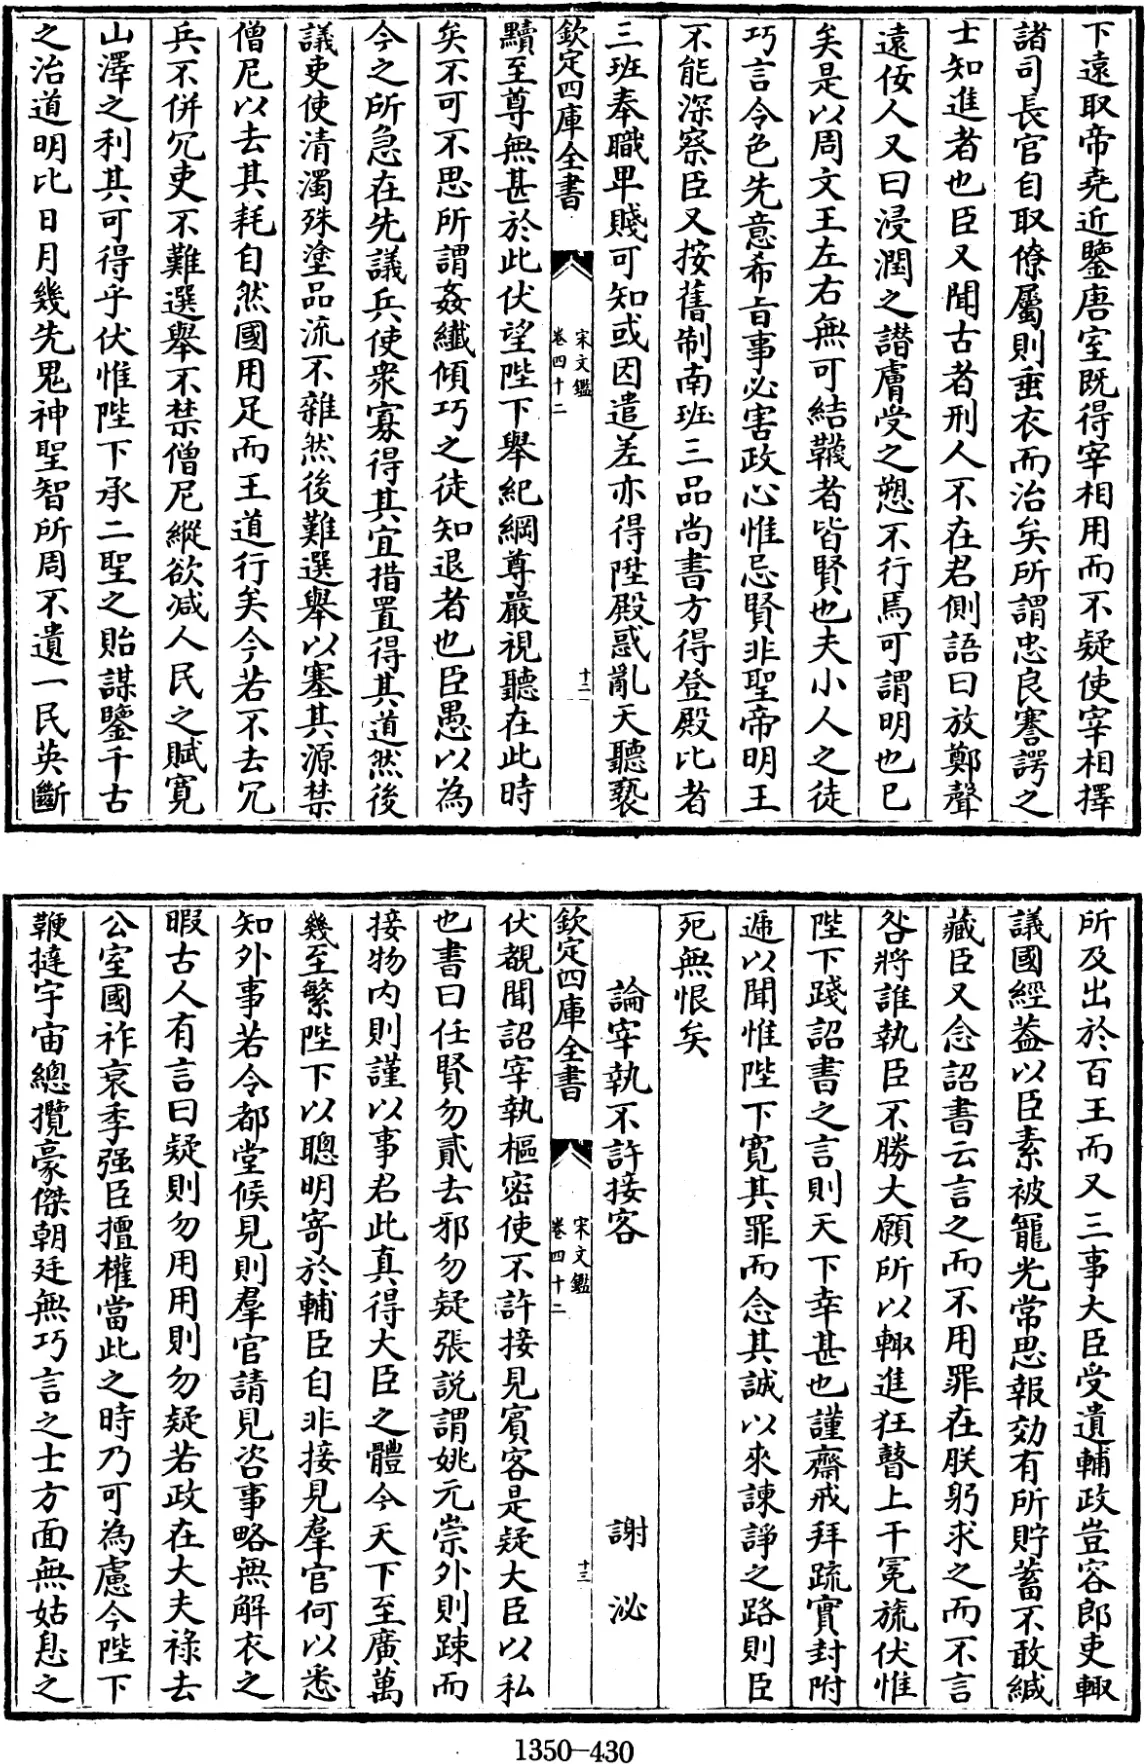 下遠取帝堯近鑒唐室既得宰相用而不疑使宰相擇
諸司長官自取僚屬則垂衣而治矣所謂忠良謇諤之
士知進者也臣又聞古者刑人不在君側語曰放鄭聲
遠佞人又曰浸潤之譖膚受之愬不行焉可謂明也已
矣是以周文王左右無可結韈者皆賢也夫小人之徒
巧言令色先意希旨事必害政心惟忌賢非聖帝明王
不能深察臣又按舊制南班三品尚書方得登殿比者
三班奉職卑賤可知或因遣差亦得陞殿惑亂天聽褻
欽定四庫全書
宋文鑑
卷四十二
十二
黷至尊無甚於此伏望陛下舉紀綱尊嚴視聽在此時
矣不可不思所謂姦纎傾巧之徒知退者也臣愚以為
今之所急在先議兵使衆寡得其宜措置得其道然後
議吏使清濁殊塗品流不雜然後難選舉以塞其源禁
僧尼以去其耗自然國用足而王道行矣今若不去冗
兵不併冗吏不難選舉不禁僧尼縱欲减人民之賦寛
山澤之利其可得乎伏惟陛下承二聖之貽謀鑒千古
之治道明比日月幾先鬼神聖智所周不遺一民英斷
所及出於百王而又三事大臣受遺輔政豈容郎吏輙
議國經蓋以臣素被寵光常思報効有所貯蓄不敢緘
藏臣又念詔書云言之而不用罪在朕躬求之而不言
咎將誰執臣不勝大願所以輙進狂瞽上干冕旒伏惟
陛下踐詔書之言則天下幸甚也謹齋戒拜疏實封附
遞以聞惟陛下寛其罪而念其誠以來諫諍之路則臣
死無恨矣
論宰執不許接客　謝泌
欽定四庫全書
宋文鑑
卷四十二
十三
伏覩聞詔宰執樞密使不許接見賓客是疑大臣以私
也書曰任賢勿貳去邪勿疑張説謂姚元崇外則踈而
接物内則謹以事君此真得大臣之體今天下至廣萬
幾至繁陛下以聰明寄於輔臣自非接見羣官何以悉
知外事若令都堂候見則羣官請見咨事略無解衣之
暇古人有言曰疑則勿用用則勿疑若政在大夫祿去
公室國祚衰季强臣擅權當此之時乃可為慮今陛下
鞭撻宇宙總攬豪傑朝廷無巧言之士方面無姑息之
1350-430